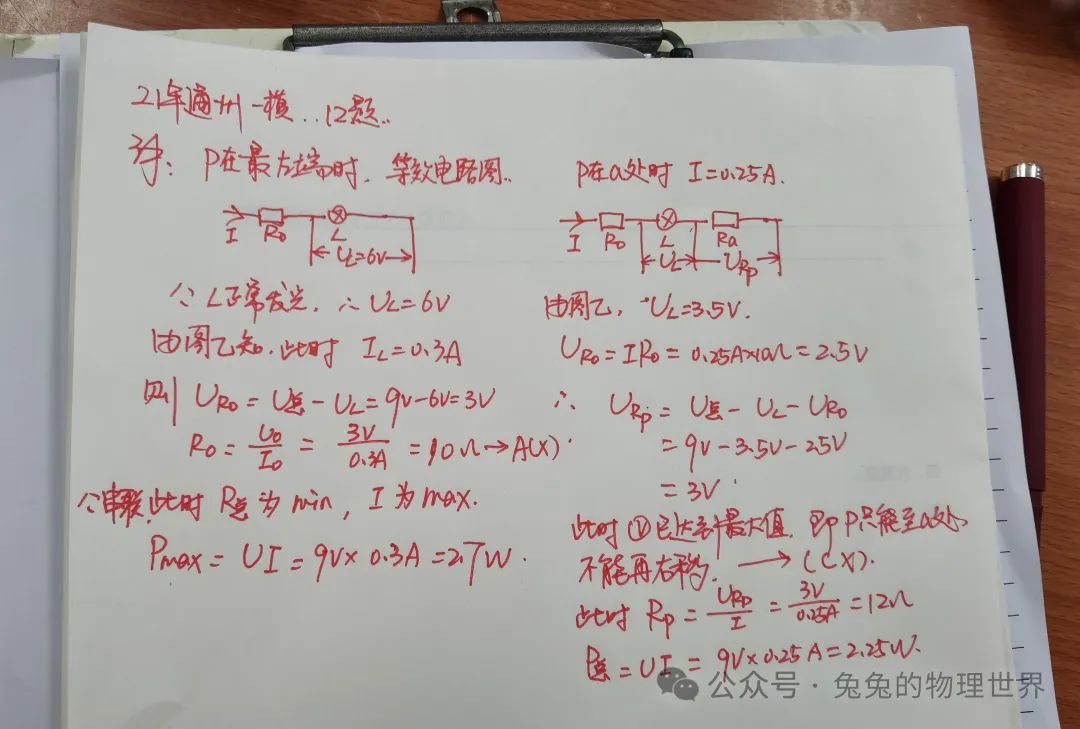 21年通州一模..12题..
解: P在最左端时. 等效电路图..
I R₀ L
U_L=6V
∵ L正常发光, ∴ U_L=6V
由图乙知.此时 I_L=0.3A
则 U_R₀=U总-U_L=9V-6V=3V
R₀=U₀/I₀=3V/0.3A=10Ω→A(X)
∵串联,此时 R总为min, I为max.
Pmax=UI=9V×0.3A=2.7W.
P在a处时 I=0.25A.
I R₀ L Ra
U_L U_Rp
由图乙, U_L=3.5V.
U_R₀=IR₀=0.25A×10Ω=2.5V
∴ U_Rp=U总-U_L-U_R₀
=9V-3.5V-2.5V
=3V
此时Ⓥ已达到最大值. 即P只能至a处.
不能再右移. → (CX).
此时 Rp=U_Rp/I=3V/0.25A=12Ω
P总=UI=9V×0.25A=2.25W.
公众号·兔兔的物理世界